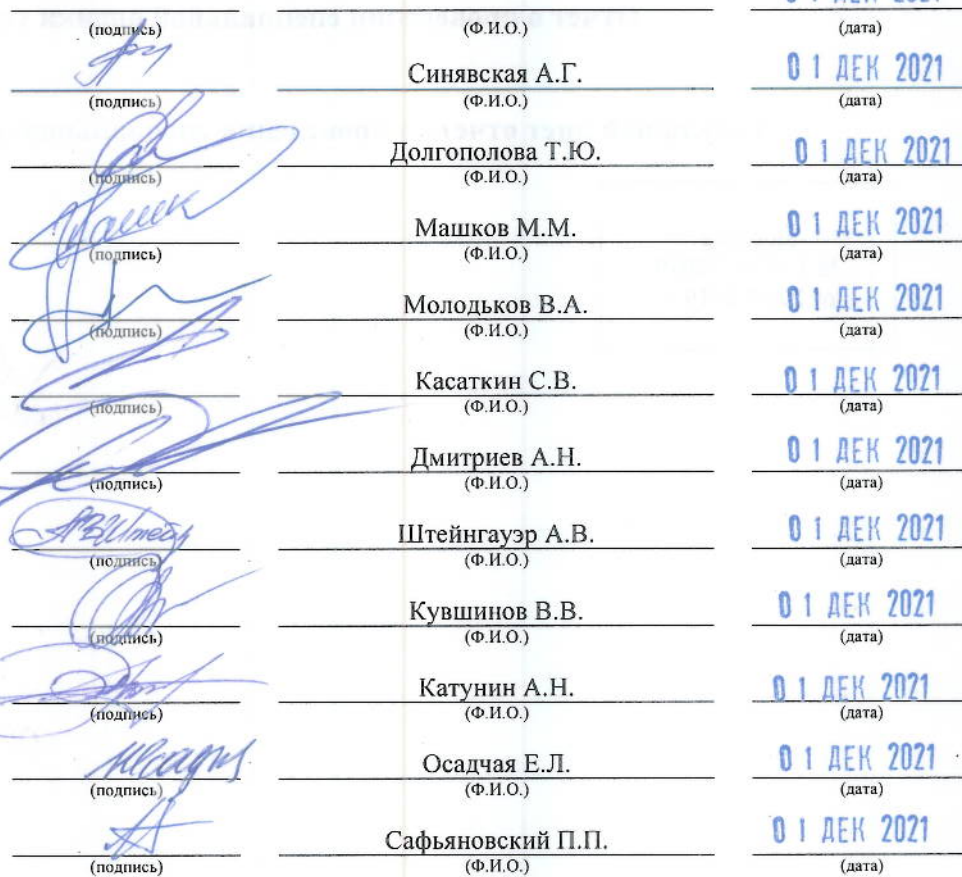 (подпись) (Ф.И.О.) (дата)
Синявская А.Г. 01 ДЕК 2021
(подпись) (Ф.И.О.) (дата)
Долгополова Т.Ю. 01 ДЕК 2021
(подпись) (Ф.И.О.) (дата)
Машков М.М. 01 ДЕК 2021
(подпись) (Ф.И.О.) (дата)
Молодьков В.А. 01 ДЕК 2021
(подпись) (Ф.И.О.) (дата)
Касаткин С.В. 01 ДЕК 2021
(подпись) (Ф.И.О.) (дата)
Дмитриев А.Н. 01 ДЕК 2021
(подпись) (Ф.И.О.) (дата)
Штейнгауэр А.В. 01 ДЕК 2021
(подпись) (Ф.И.О.) (дата)
Кувшинов В.В. 01 ДЕК 2021
(подпись) (Ф.И.О.) (дата)
Катунин А.Н. 01 ДЕК 2021
(подпись) (Ф.И.О.) (дата)
Осадчая Е.Л. 01 ДЕК 2021
(подпись) (Ф.И.О.) (дата)
Сафьяновский П.П. 01 ДЕК 2021
(подпись) (Ф.И.О.) (дата)